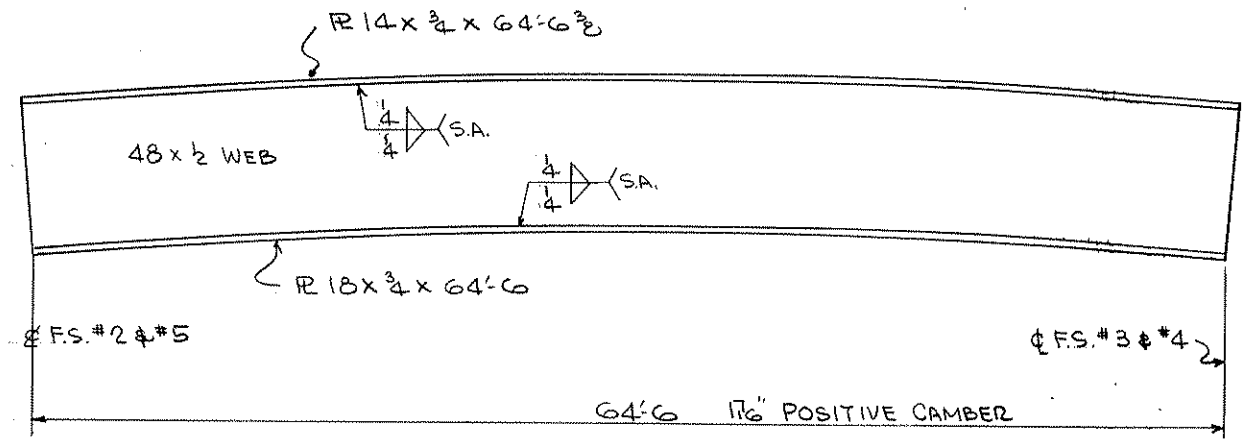 PL 14 x 3/4 x 64'-6 3/8
1/4
1/4
S.A.
48 x 1/2 WEB
1/4
1/4
S.A.
PL 18 x 3/4 x 64'-6
℄ F.S. #2 & #5
℄ F.S. #3 & #4
64'-6 POSITIVE CAMBER